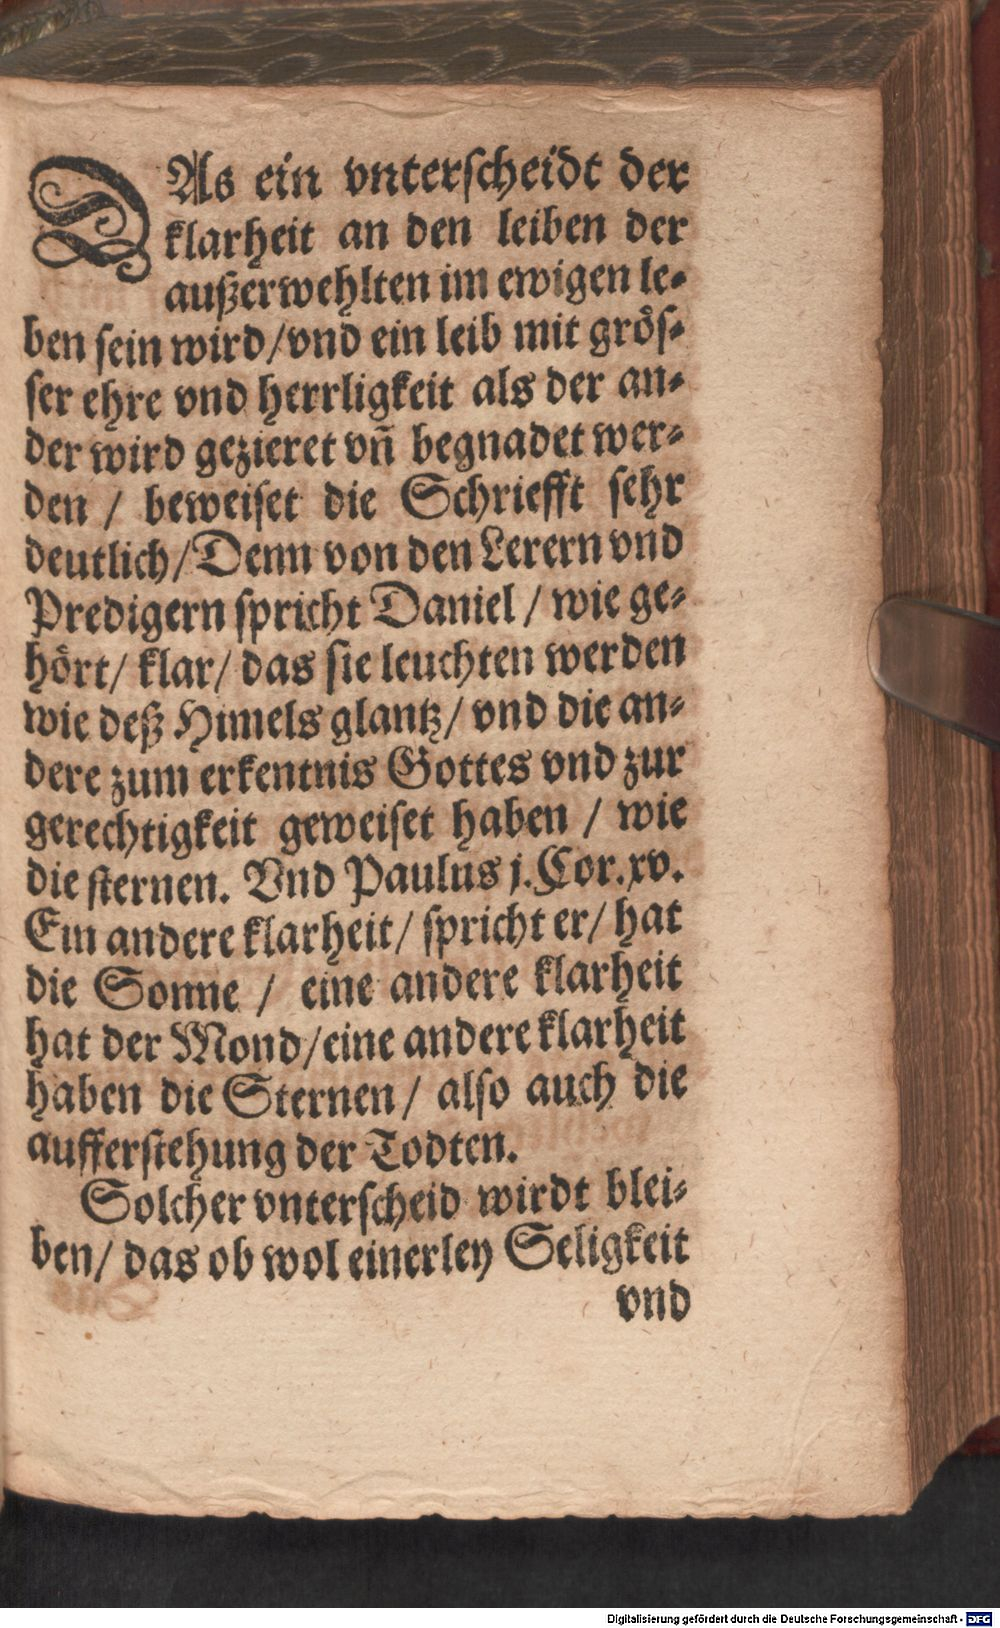 DAs ein vnterscheidt der
klarheit an den leiben der
außerwehlten im ewigen le-
ben sein wird/vnd ein leib mit grös-
ser ehre vnd herrligkeit als der an-
der wird gezieret vñ begnadet wer-
den / beweiset die Schriefft sehr
deutlich/Denn von den Lerern vnd
Predigern spricht Daniel / wie ge-
hört/ klar/ das sie leuchten werden
wie deß Himels glantz/ vnd die an-
dere zum erkentnis Gottes vnd zur
gerechtigkeit geweiset haben / wie
die sternen. Vnd Paulus j.Cor.xv.
Ein andere klarheit/ spricht er/ hat
die Sonne / eine andere klarheit
hat der Mond/eine andere klarheit
haben die Sternen/ also auch die
aufferstehung der Todten.
Solcher vnterscheid wirdt blei-
ben/ das ob wol einerley Seligkeit
vnd
Digitalisierung gefördert durch die Deutsche Forschungsgemeinschaft - DFG